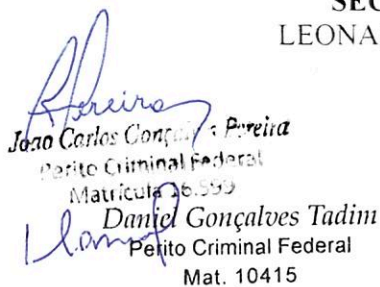 SEC
LEONA
Pereira
João Carlos Gonçalves Pereira
Perito Criminal Federal
Matrícula 16.599
Daniel Gonçalves Tadim
Perito Criminal Federal
Mat. 10415